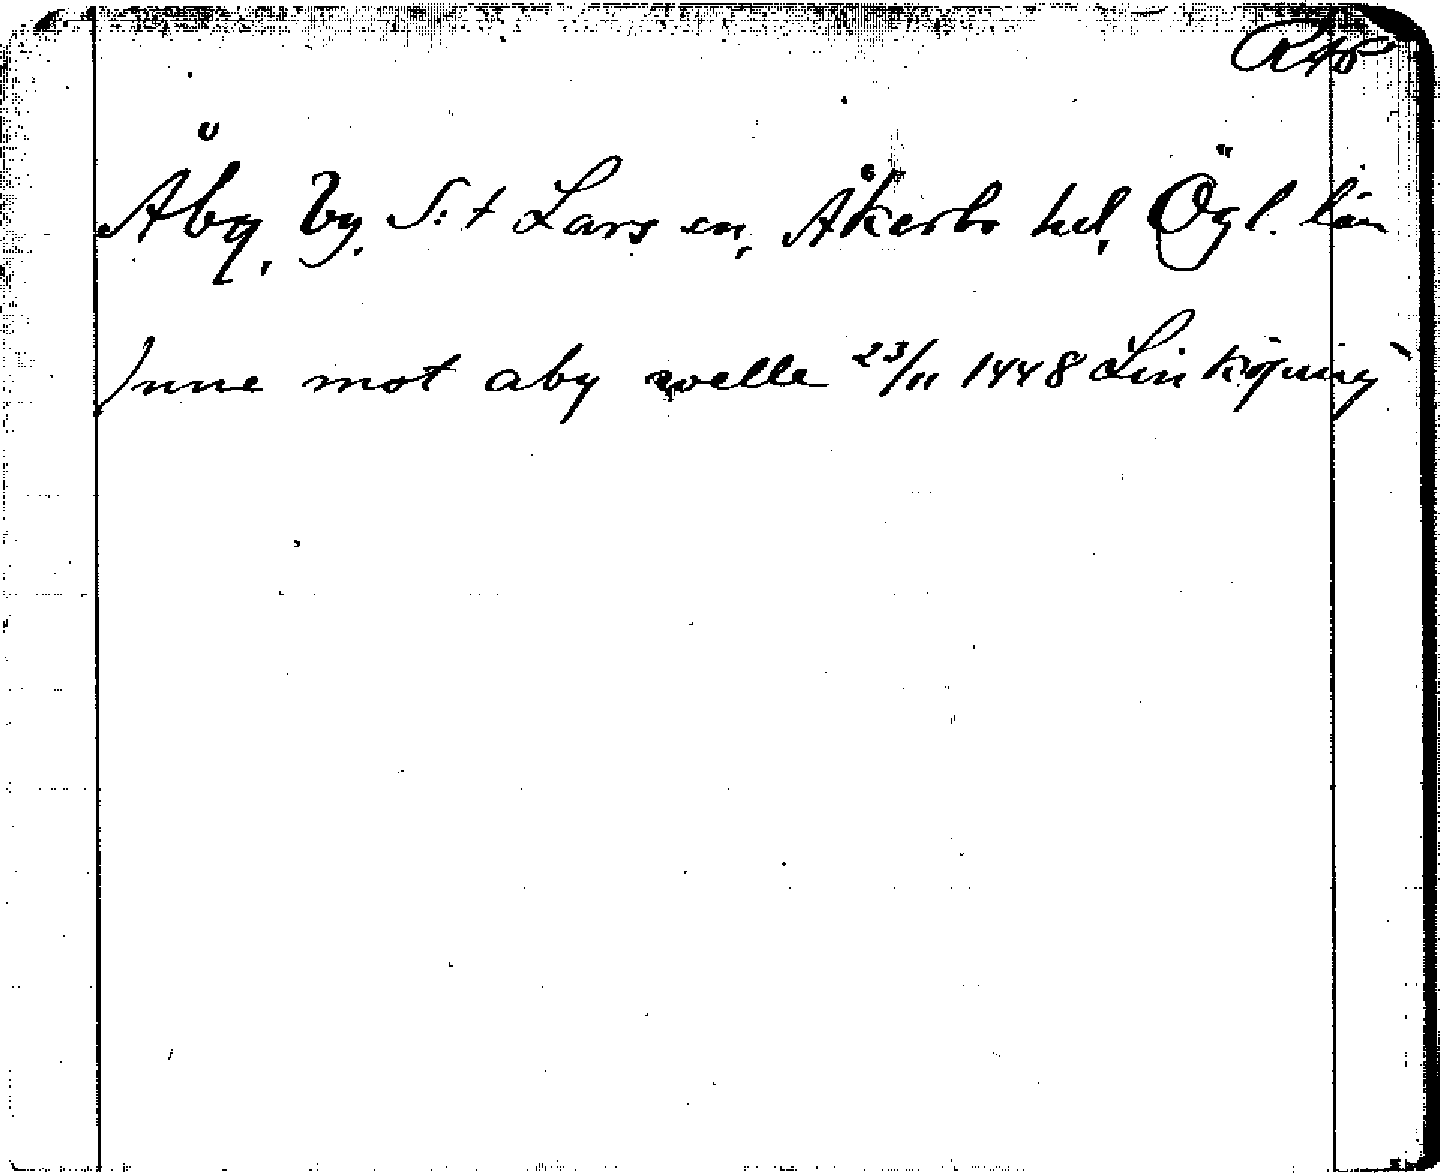 RAp
Åby, by, S:t Lars sn, Åkerbo hd, Ögl. län
Jnne mot aby welle 23/11 1448 Linköping